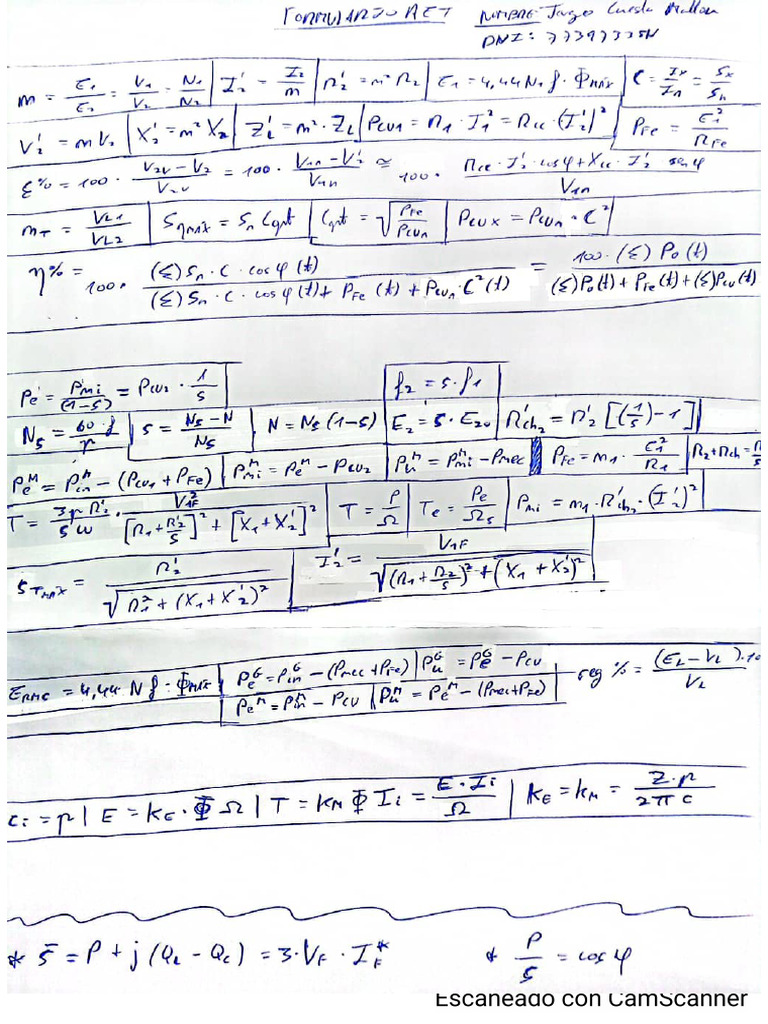 FORMULARIO RET NOMBRE: Jorge Cuesta
DNI:
m = E₁/E₂ = V₁/V₂ = N₁/N₂ | I₂' = I₂/m | R₂' = m² R₂ | E₁ = 4,44 N₁ f · Φmáx | C = Ix/In = Sx/Sn
V₂' = m V₂ | X₂' = m² X₂ | Z_L' = m² · Z_L | Pcu₁ = R₁ · I₁² = Rcc · (I₂')² | P_Fe = E₁²/R_Fe
ε% = 100 · (V₂v − V₂)/V₂v = 100 · (V₁n − V₂')/V₁n ≃ 100 · (Rcc · I₂' · cosφ + Xcc · I₂' senφ)/V₁n
m_T = V_L1/V_L2 | Sηmáx = Sn Copt | Copt = √(P_Fe/Pcun) | Pcux = Pcun · C²
η% = 100 · (Σ) Sn · C · cosφ (t) / ((Σ) Sn · C · cosφ (t) + P_Fe (t) + Pcun · C² (t)) = 100 · (Σ) P₀ (t) / ((Σ) P₀(t) + P_Fe(t) + (Σ) Pcu(t))
Pe = Pmi/(1−s) = Pcu₂ · 1/s | f₂ = s · f₁
Ns = 60 · f/p | s = (Ns − N)/Ns | N = Ns (1−s) | E₂ = s · E₂₀ | R'ch₂ = R₂' [(1/s) − 1]
Pe^M = Pin^M − (Pcu₁ + P_Fe) | Pmi^M = Pe^M − Pcu₂ | Pu^M = Pmi^M − Pmec | P_Fe = m₁ · E₁²/R₁ | R₂ + Rch =
T = 3p R₂'/(s ω) · V₁F²/([R₁ + R₂'/s]² + [X₁ + X₂']²) | T = P/Ω | Te = Pe/Ωs | Pmi = m₁ · R'ch₂ · (I₂')²
sTmáx = R₂'/√(R₁² + (X₁ + X₂')²) | I₂' = V₁F/√((R₁ + R₂/s)² + (X₁ + X₂')²)
E_RMS = 4,44 N f · Φmáx | Pe^G = Pin^G − (Pmec + P_Fe) | Pu^G = Pe^G − Pcu reg % = (E_L − V_L) · 10/V_L
Pe^M = Pin^M − Pcu | Pu^M = Pe^M − (Pmec + P_Fe)
ci = p | E = k_E · Φ Ω | T = k_M Φ Ii = E · Ii/Ω | k_E = k_M = Z · p/(2π c)
* S̄ = P + j (Q_L − Q_C) = 3 · V_F · I_F* * P/S = cosφ
Escaneado con CamScanner